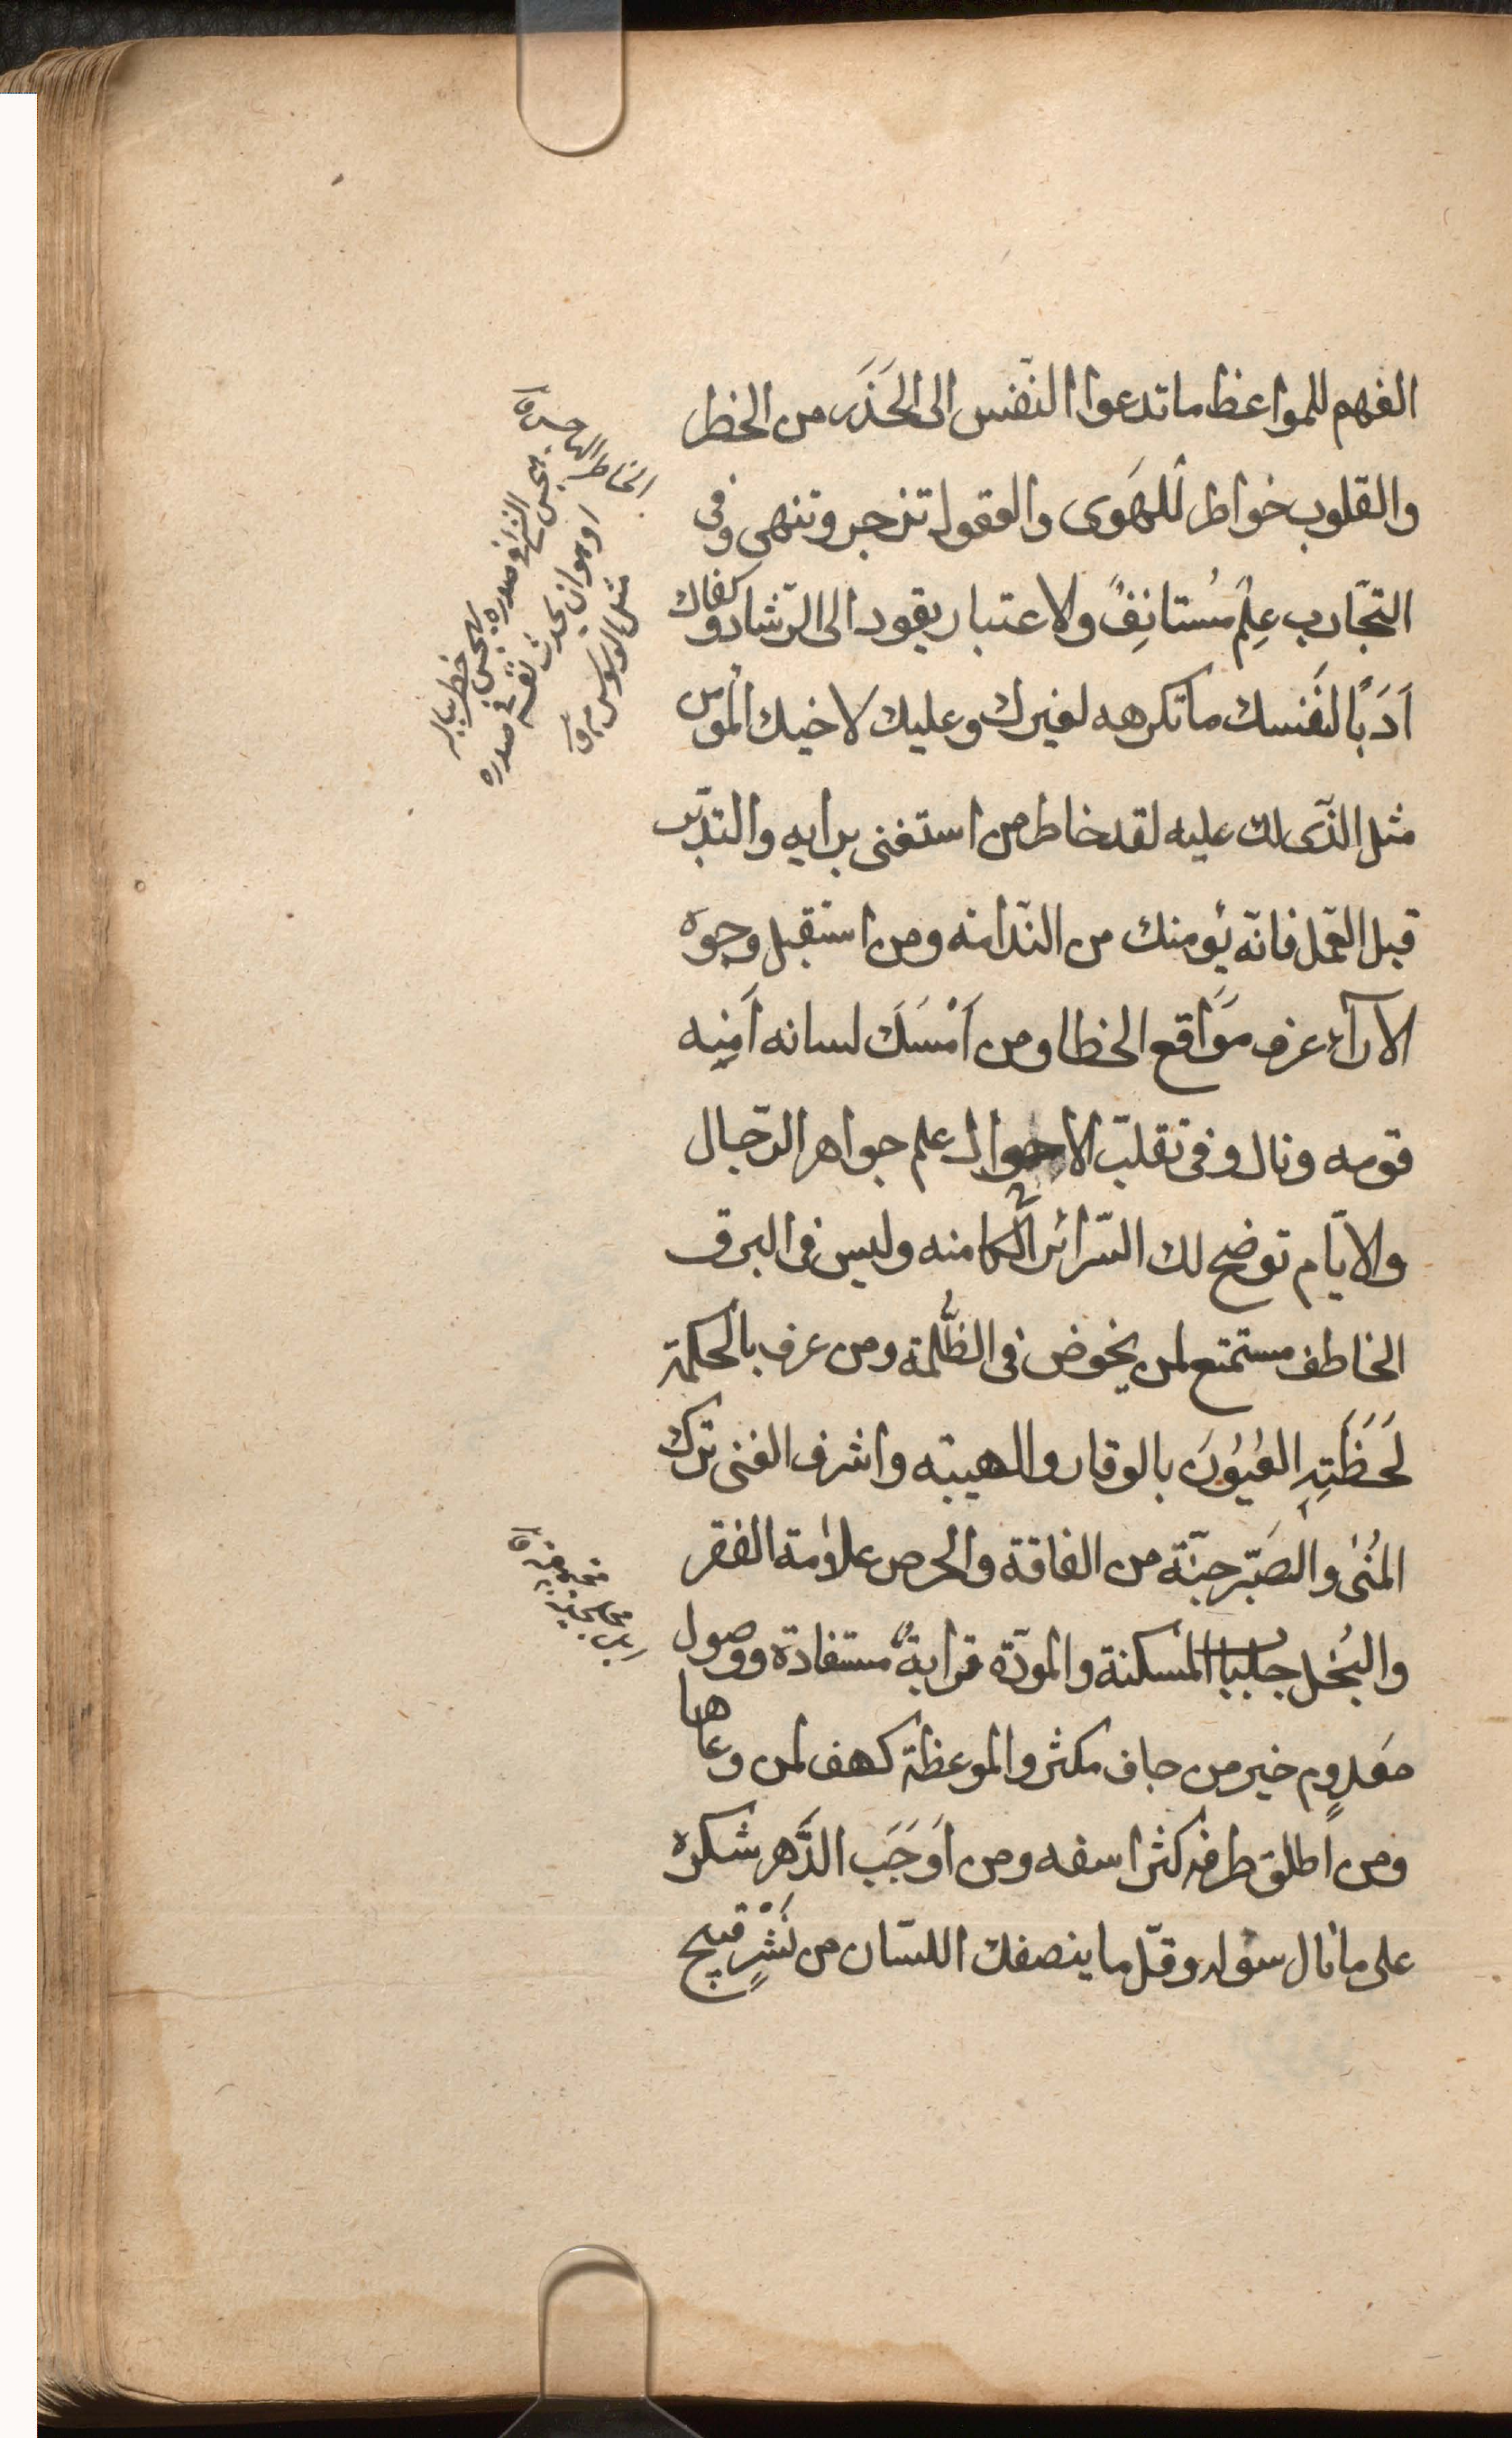 الفهم للمواعظ ما تدعوا النّفس الى الحَذَر من الخطر
والقلوب خواطر للهَوى والعقول تزجر وتنهى وفى
التجّارب عِلمٌ مُستانِفٌ ولاعتبار يقود الى الرّشاد وكفاك
اَدَبًا لنَفسك ما تكرهه لغيرك وعليك لاخيك المؤمن
مثل الذّى لك عليه لقد خاطر من استغنى برايه والتدبّر
قبل العَمل فانّه يُومنك من النّدامه ومن استقبل وجوه
الآرآء عرف مَوَاقع الخطا ومن اَمْسَكَ لسانه اَمِنِه
قومه ونال وفى تقلّب الاحوال علم جواهر الرّجال
والايّام توضح لك السّرائر الكامنه وليس فى البرق
الخاطف مستمتع لمن يخوض فى الظُّلمة ومن عرف بالحكمة
لَحَظَتِهِ العُيُونَ بالوقار والهيبته واشرف الغنى ترك
المُنٰى والصَبّر جنّة من الفاقة والحرص علامة الفقر
والبُخل جلباب المسكنة والمودّة قرابةٌ مستفادة ووصول
معدوٍم خير من جاف مكثر والموعظة كهف لمن وعاها
ومن اطلق طرفه كثر اسفه ومن اَوجَب الدَّهر شكره
على ما نال سؤله وقلّ ما ينصفك اللسّان من نَشْرٍ قبيح
الخاطر الهاجس